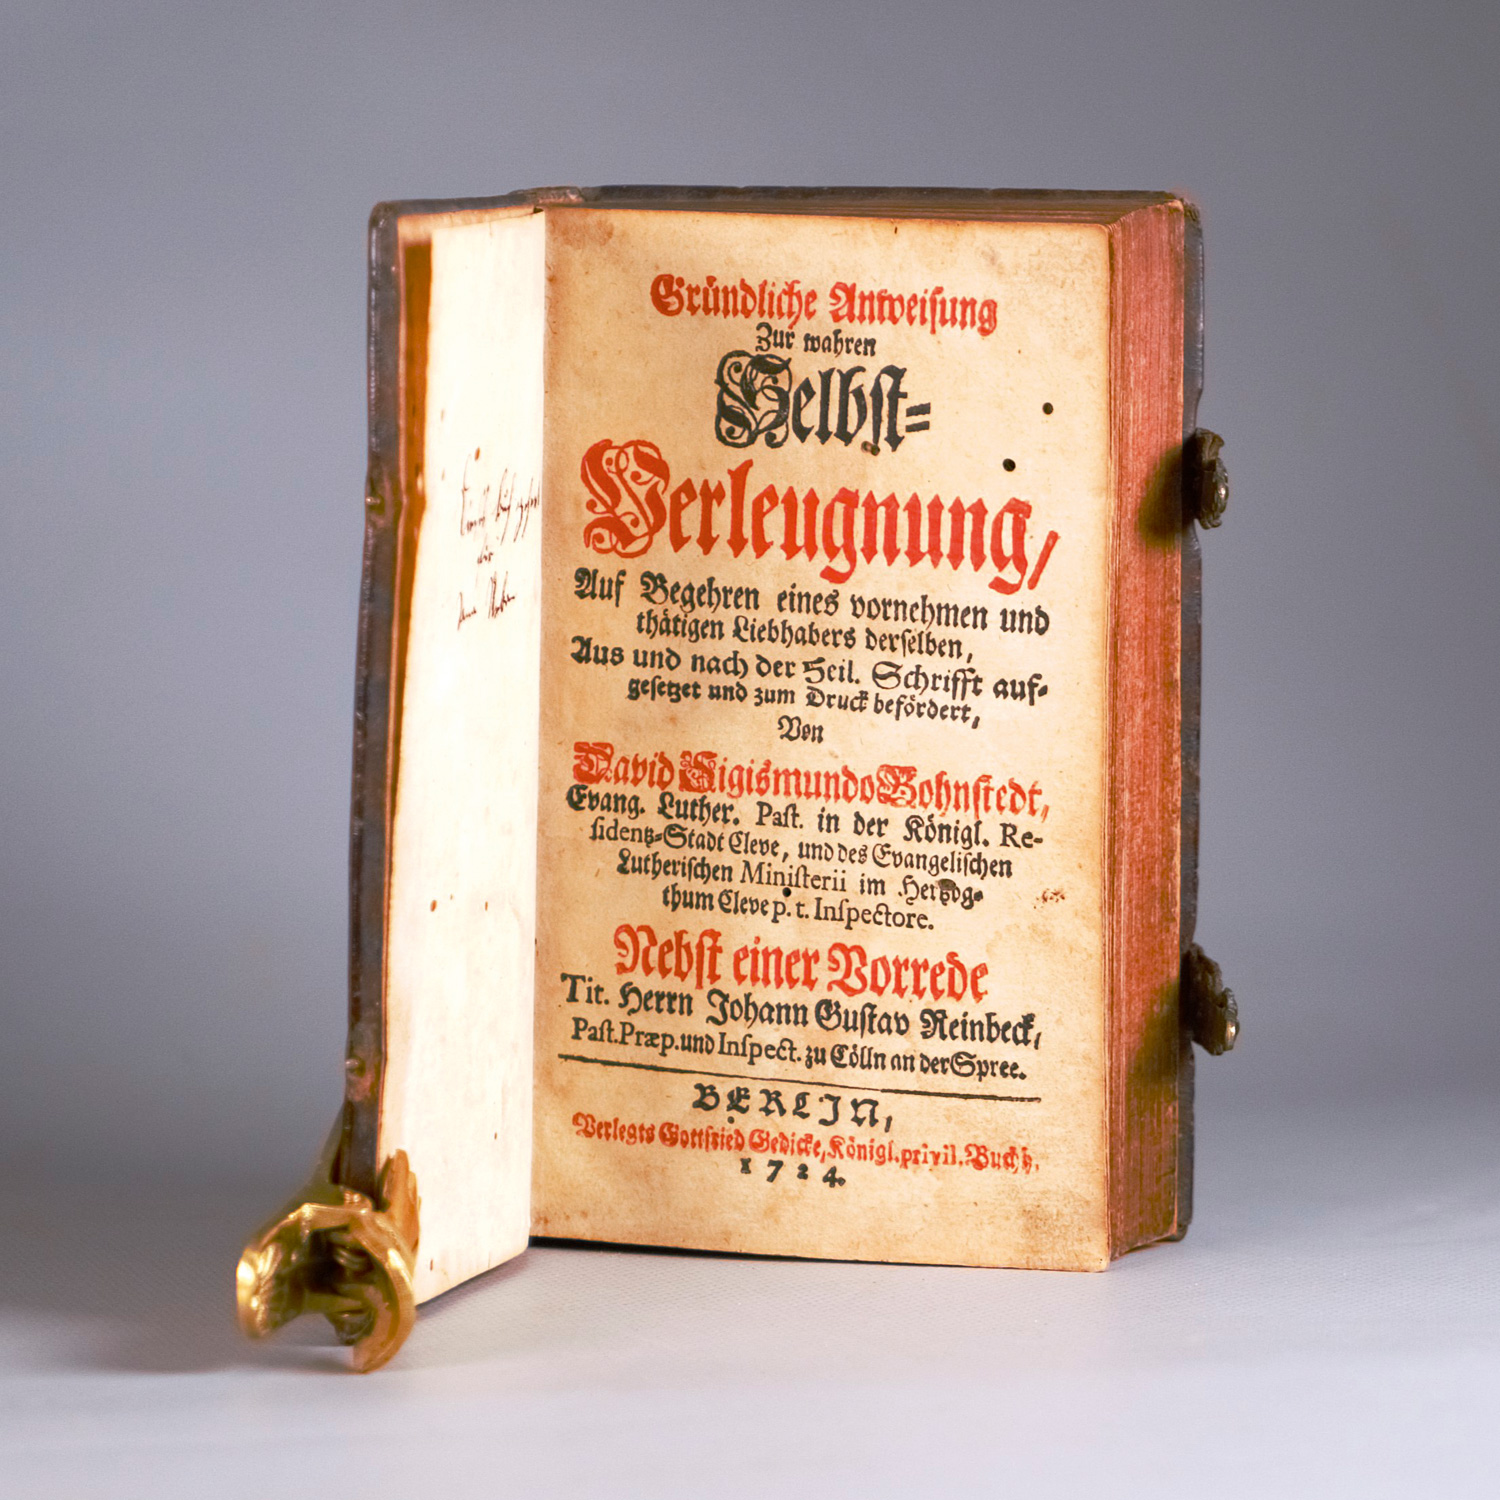 Gründliche Anweisung
Zur wahren
Selbst=
Verleugnung/
Auf Begehren eines vornehmen und
thätigen Liebhabers derselben,
Aus und nach der Heil. Schrifft auf=
gesetzet und zum Druck befördert,
Von
David Sigismundo Bohnstedt,
Evang. Luther. Past. in der Königl. Re-
sidentz=Stadt Cleve, und des Evangelischen
Lutherischen Ministerii im Hertzog=
thum Cleve p. t. Inspectore.
Nebst einer Vorrede
Tit. Herrn Johann Gustav Reinbeck,
Past. Præp. und Inspect. zu Cölln an der Spree.
BERLIN,
Verlegts Gottfried Gedicke, Königl. privil. Buchh.
1724.